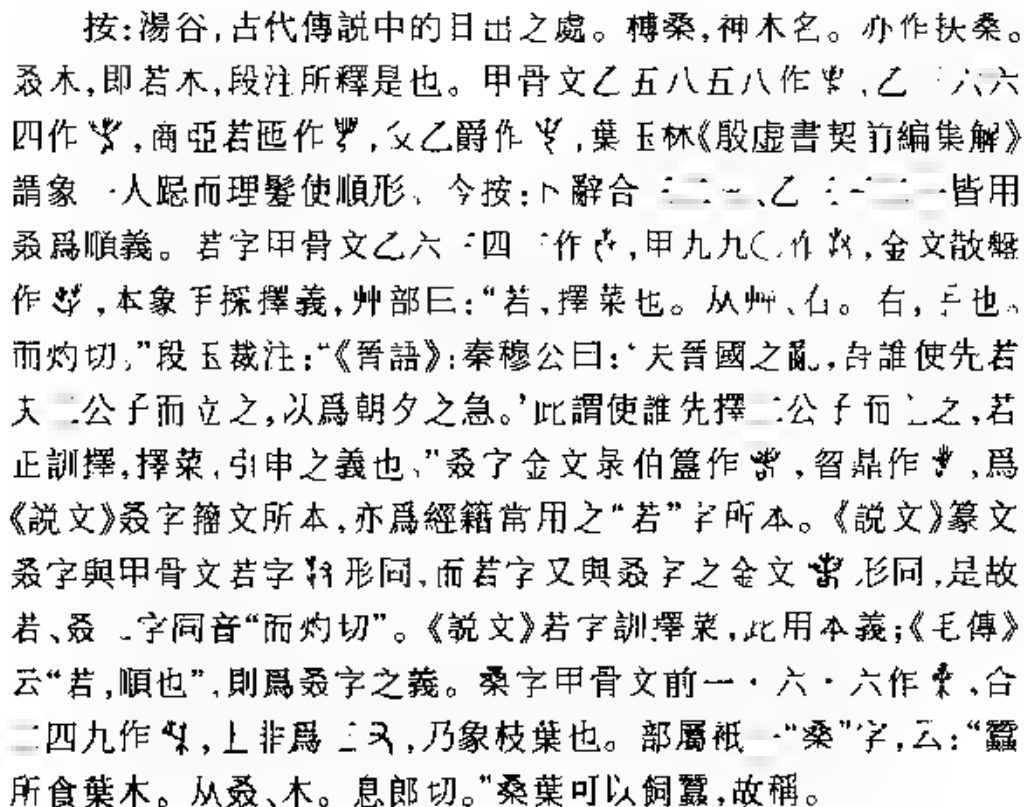 按:湯谷,古代傳説中的日出之處。榑桑,神木名。亦作扶桑。
叒木,即若木,段注所釋是也。甲骨文乙五八五八作,乙 六六
四作,商亞若匜作,父乙爵作,葉玉林《殷虚書契前編集解》
謂象一人跽而理髮使順形、今按:卜辭合、乙 皆用
叒爲順義。若字甲骨文乙六 四 作,甲九九〇作,金文散盤
作,本象手採擇義,艸部曰:“若,擇菜也。从艸、右。右,手也。
而灼切。”段玉裁注:“《晉語》:秦穆公曰:‘夫晉國之亂,吾誰使先若
夫二公子而立之,以爲朝夕之急。’此謂使誰先擇二公子而立之,若
正訓擇,擇菜,引申之義也、”叒字金文彔伯簋作,曶鼎作,爲
《説文》叒字籀文所本,亦爲經籍常用之“若”字所本。《説文》篆文
叒字與甲骨文若字形同,而若字又與叒字之金文形同,是故
若、叒二字同音“而灼切”。《説文》若字訓擇菜,此用本義;《毛傳》
云“若,順也”,則爲叒字之義。桑字甲骨文前一·六·六作,合
四九作,上非爲三又,乃象枝葉也。部屬衹一“桑”字,云:“蠶
所食葉木。从叒、木。息郎切。”桑葉可以飼蠶,故稱。